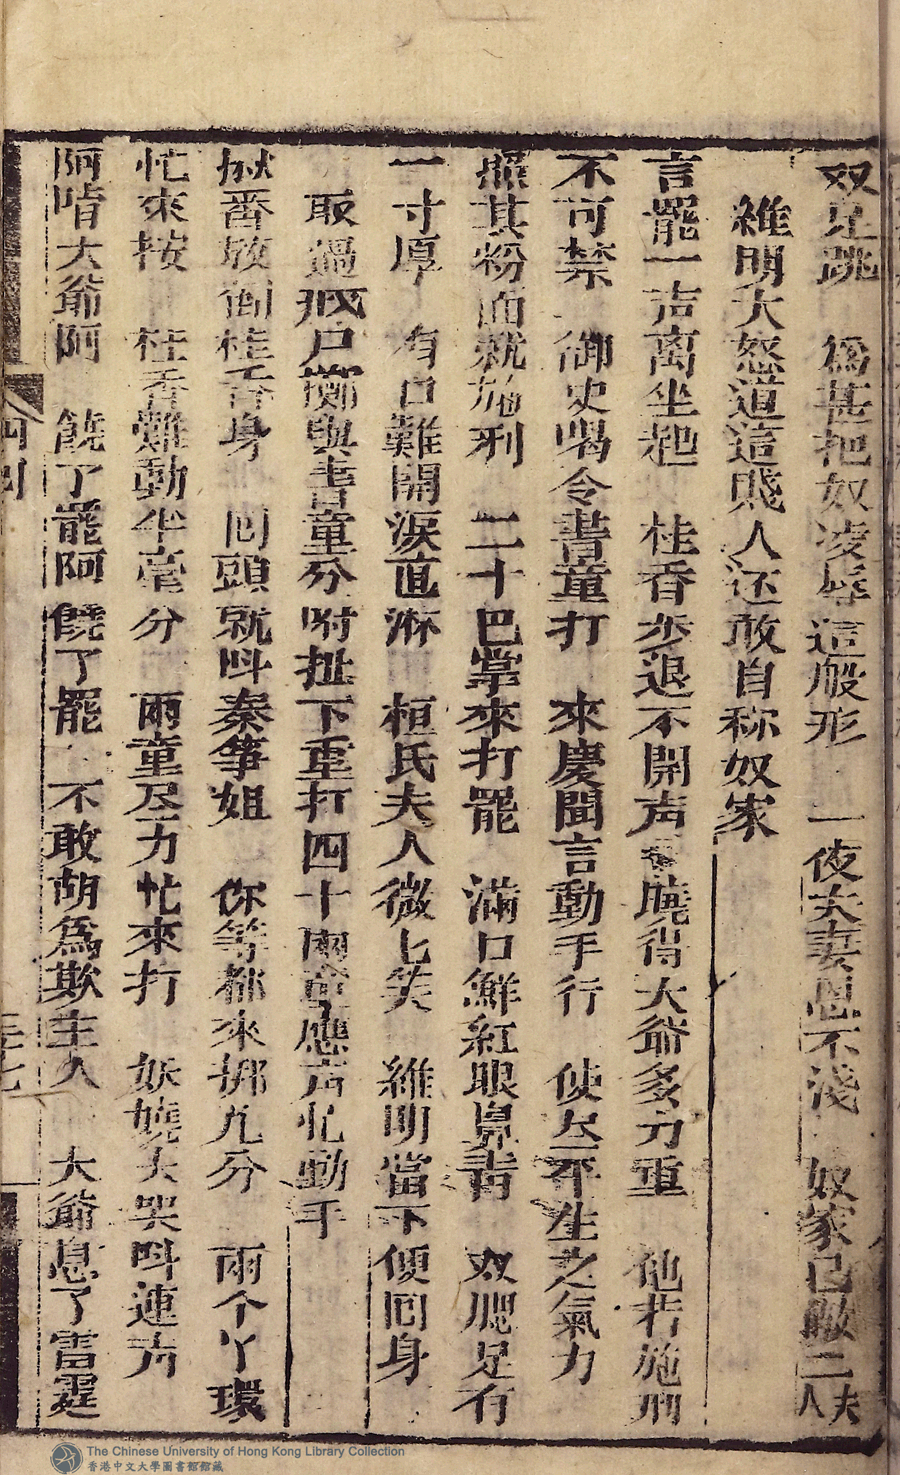 双足跳　為甚把奴凌辱這般形　一夜夫妻恩不淺　奴家已做二夫人
維明大怒道這賎人还敢自称奴家
言罷一声离坐起　桂香步退不開声　曉得大爺多力重　他若施刑
不可禁　御史喝令書童打　來慶聞言動手行　使尽平生之氣力
照其粉面就施刑　二十巴掌來打罷　滿口鮮紅眼鼻青　双腮足有
一寸厚　有口難開淚直淋　桓氏夫人微七笑　維明當下便囘身
取過戒尸擲與書童分咐扯下重打四十兩童應声忙動手
揪番放倒桂香身　囘頭就呌秦筝姐　你等都來挷九分　兩个丫環
忙來按　桂香難動半毫分　兩童尽力忙來打　妖嬈大哭呌連声
阿唷大爺阿　饒了罷阿饒了罷　不敢胡為欺主人　大爺息了雷霆
四囘
卷七
The Chinese University of Hong Kong Library Collection
香港中文大學圖書館館藏